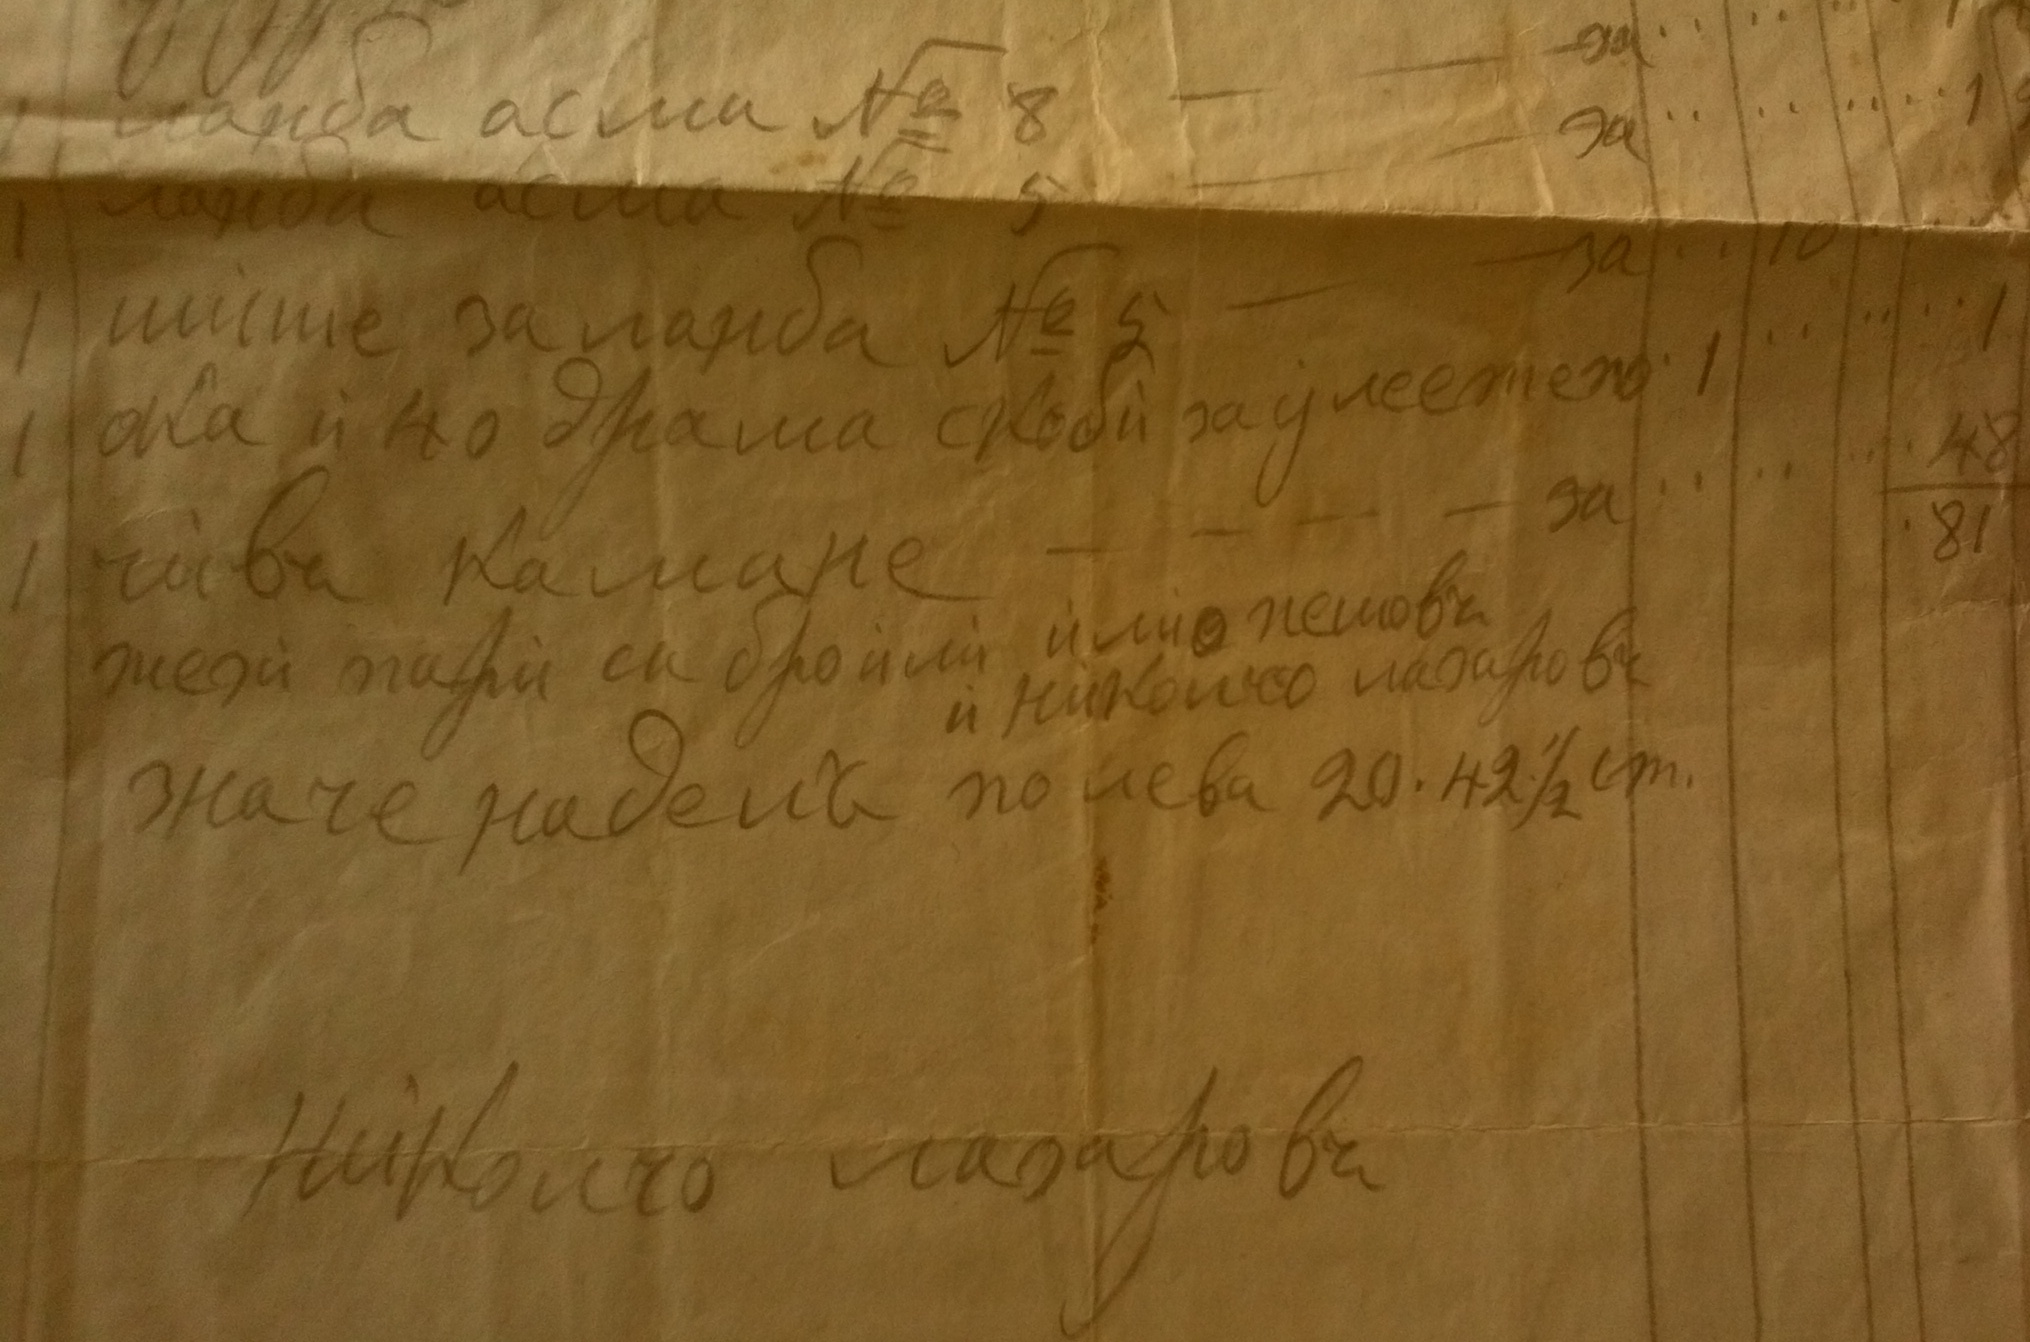 за
1 ламба асма № 8 — — за 1
1 ламба асма № 5 — — за
1 шише за ламба № 5 — — за 10
1 ока и 40 драма скоби за улеетето 1 1
1 чивъ камане — — — — за 48
81
тези пари са броили илио пешовъ
и николчо лазаровъ
значе наделъ по лева 20.42 1/2 ст.
Николчо лазаровъ